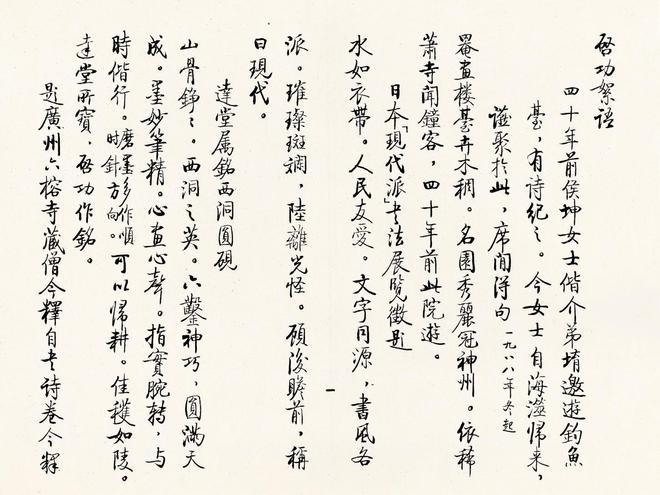 啓功絮語
四十年前侯坤女士偕介弟堉邀遊釣魚
臺，有诗紀之。今女士自海澨帰来，
讌聚於此，席间得句 一九八八年冬起
罨畫楼臺卉木稠。名園秀麗冠神州。依稀
蕭寺闻鐘客，四十年前此院遊。
日本「現代派」书法展覧徵题
水如衣帶。人民友爱。文字同源，書風各
派。璀璨斑斓，陸離光怪。顾後瞻前，稱
曰現代。
達堂属銘西洞圓硯
山骨錚〻。西洞之英。六鑿神巧，圓满天
成。墨妙筆精。心畫心聲。指實腕转，与
時偕行。磨墨多作順时針方向。可以帰耕。佳穫如陵。
達堂所寳，啓功作銘。
题廣州六榕寺藏僧今釋自书诗卷今釋